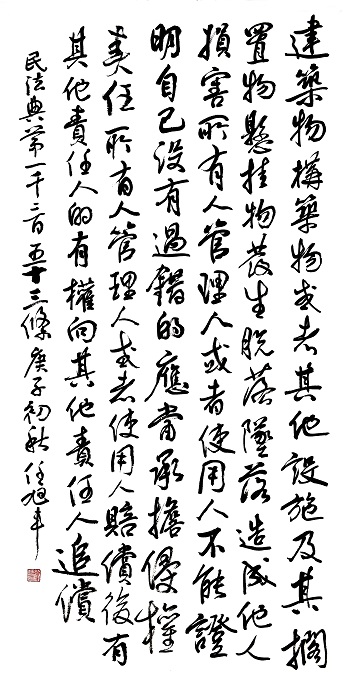 建築物構築物或者其他設施及其擱
置物懸挂物發生脫落墜落造成他人
損害所有人管理人或者使用人不能證
明自己没有過錯的應當承擔侵權
責任所有人管理人或者使用人賠償後有
其他責任人的有權向其他責任人追償
民法典第一千二百五十三條庚子初秋任旭